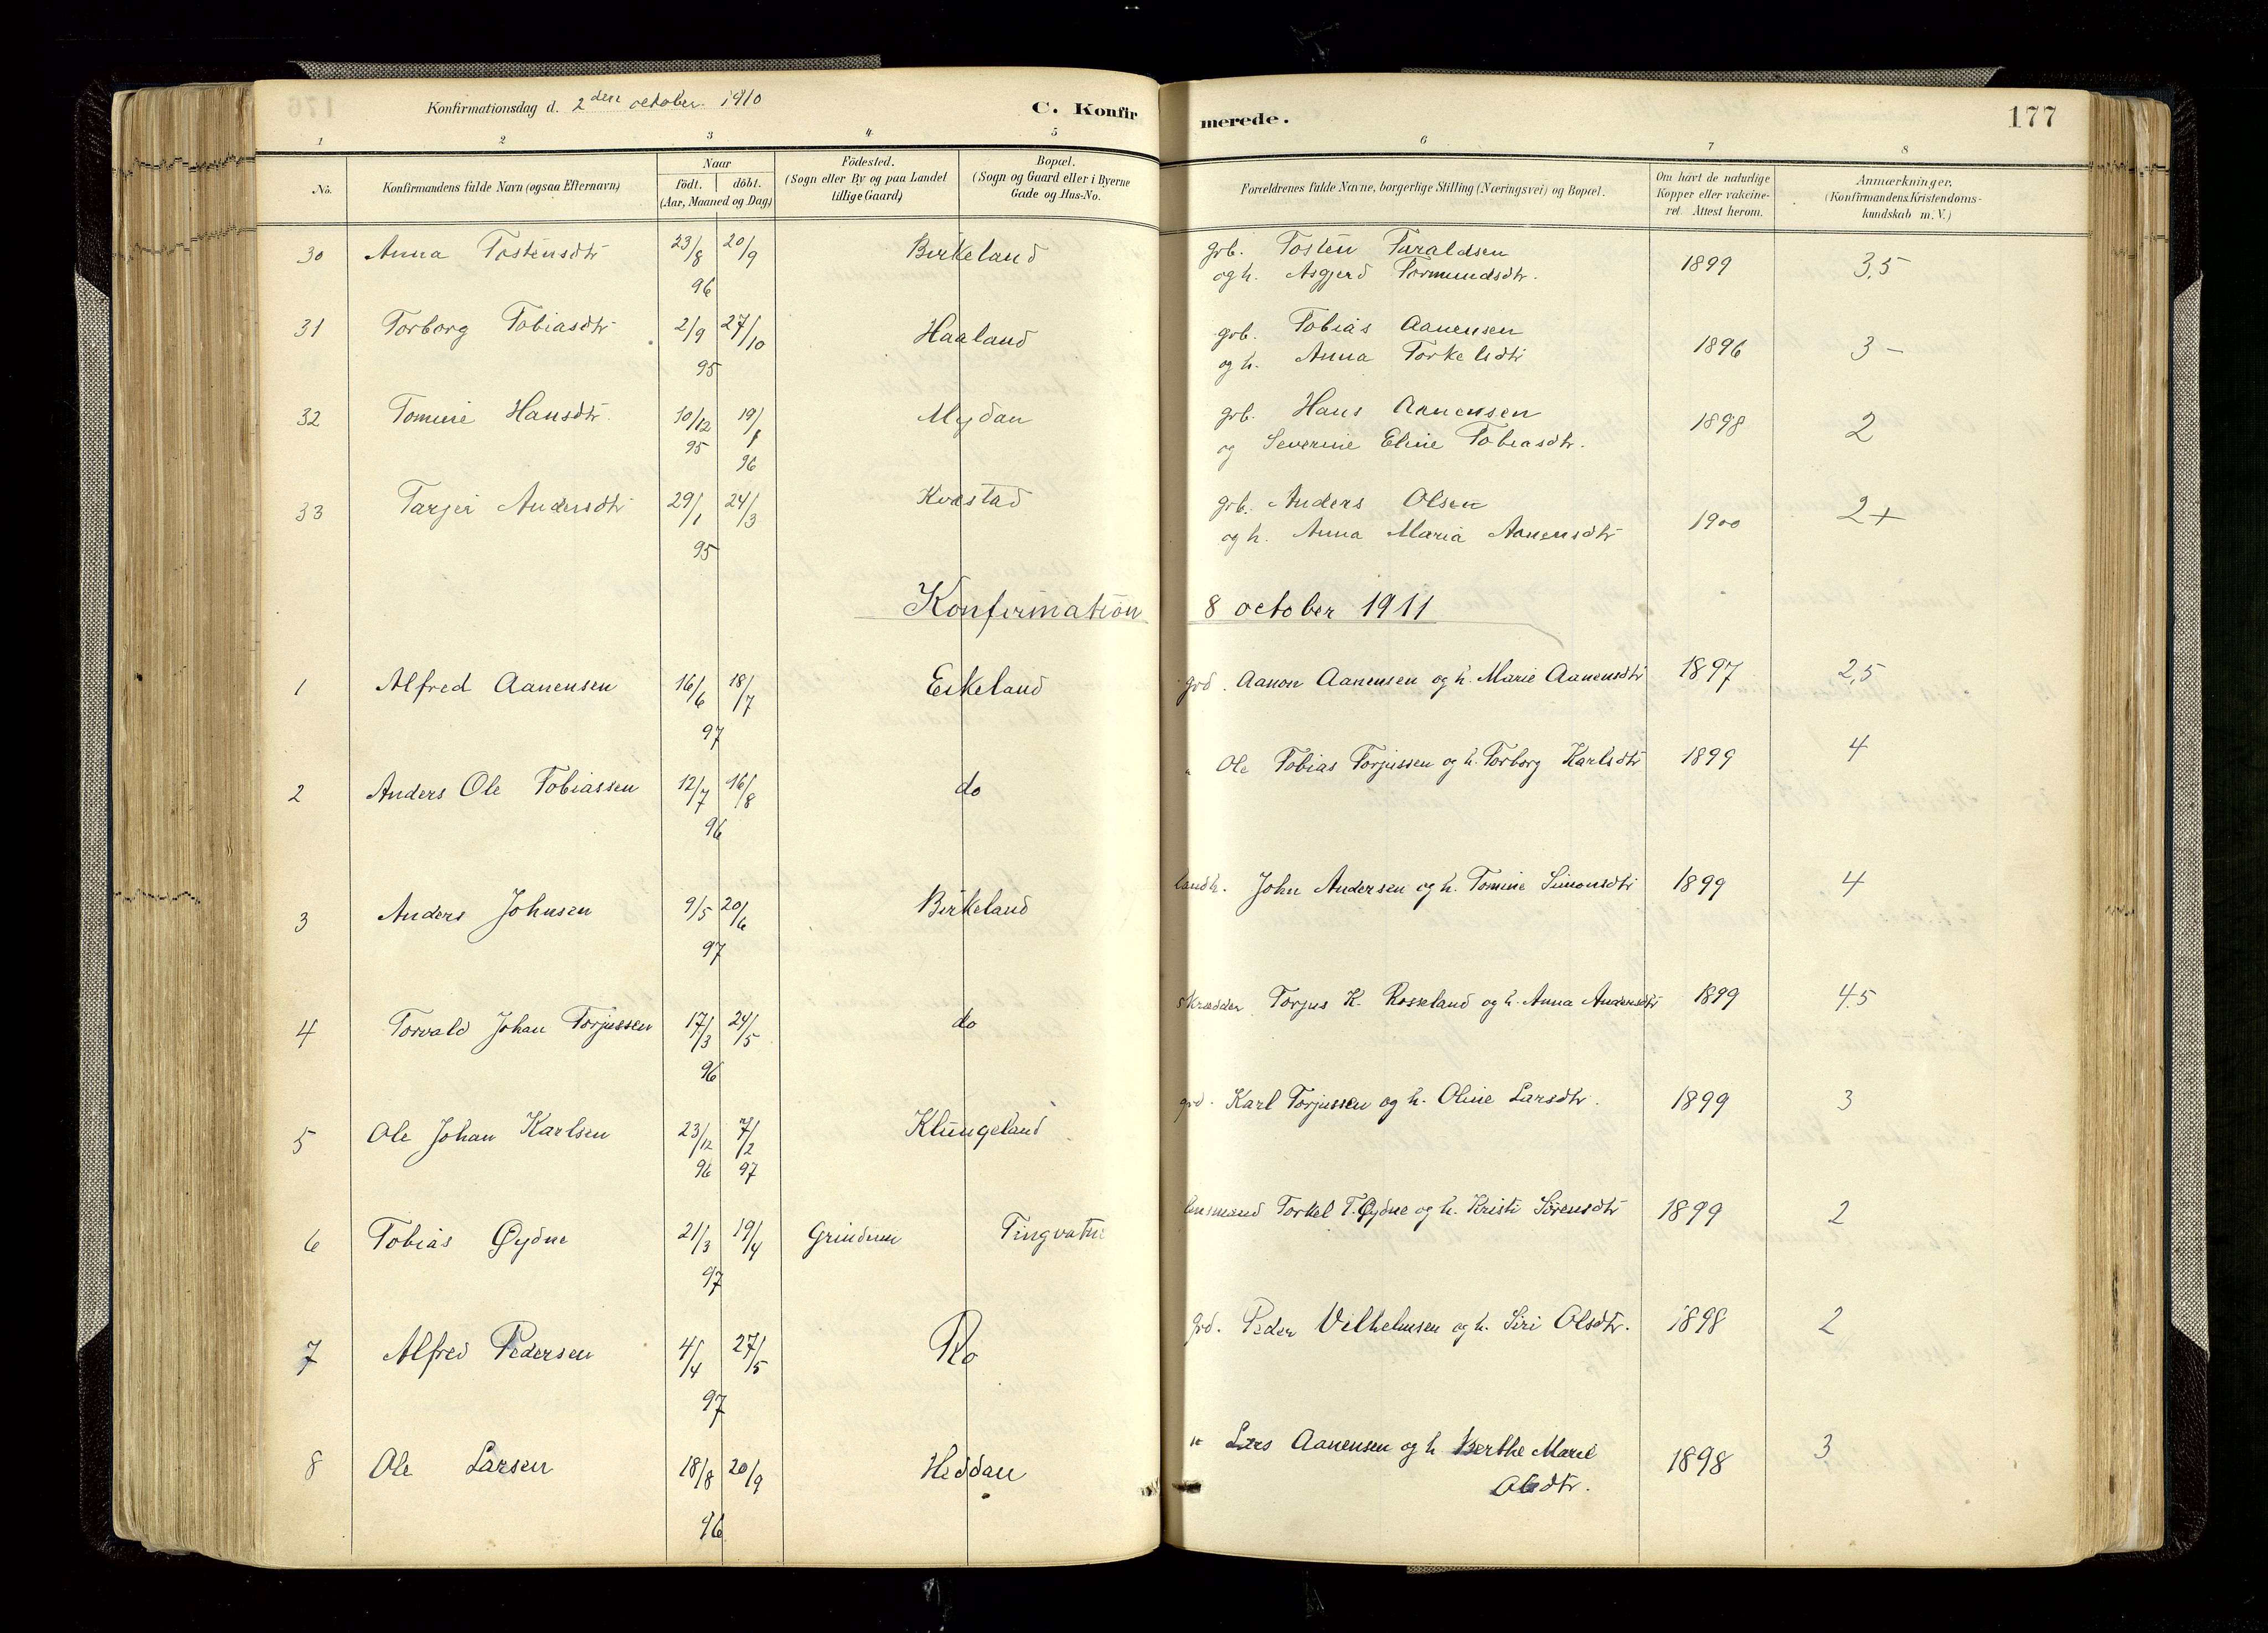 Konfirmationsdag d. 2den october 1910 C. Konfirmerede. 177
1 2 3 4 5 6 7 8
No. Konfirmandens fulde Navn (ogsaa Efternavn) Naar födt. döbt. (Aar, Maaned og Dag) Födested. (Sogn eller By og paa Landet tillige Gaard) Bopæl. (Sogn og Gaard eller i Byerne Gade og Hus-No. Forældrenes fulde Navne, borgerlige Stilling (Næringsvei) og Bopæl. Om havt de naturlige Kopper eller vakcineret. Attest herom. Anmærkninger. (Konfirmandens Kristendomskundskab m. V.)
30 Anna Tostensdtr 23/8 20/9 96 Birkeland grb. Tosten Taraldsen
og h. Asgjerd Tormundsdtr. 1899 3,5
31 Torborg Tobiasdtr 2/9 27/10 95 Haaland grb. Tobias Aanensen
og h. Anna Torkelsdtr 1896 3-
32 Tomine Hansdtr. 10/12 95 19/1 96 Mydan grb. Hans Aanensen
og Severine Eline Tobiasdtr. 1898 2
33 Tarjer Andersdtr 29/1 24/3 95 Kvæstad grb. Anders Olsen
og h. Anna Maria Aanensdtr 1900 2+
Konfirmation 8 october 1911
1 Alfred Aanensen 16/6 18/7 97 Eikeland grd. Aanon Aanensen og h. Marie Aanensdtr 1897 2,5
2 Anders Ole Tobiassen 12/7 16/8 96 do " Ole Tobias Torjussen og h. Torborg Karlsdtr 1899 4
3 Anders Johnsen 9/5 20/6 97 Birkeland landh. John Andersen og h. Tomine Simonsdtr 1899 4
4 Torvald Johan Torjussen 17/3 24/5 96 do skrædder Torjus K. Rosseland og h. Anna Andersdtr 1899 4.5
5 Ole Johan Karlsen 23/12 96 7/2 97 Klungeland grd. Karl Torjussen og h. Oline Larsdtr. 1899 3
6 Tobias Øydne 21/3 19/4 97 Grindum Tingvatn lensmand Torkel T. Øydne og h. Kristi Sørensdtr 1899 2
7 Alfred Pedersen 4/4 27/5 97 Ro grd. Peder Vilhelmsen og h. Siri Olsdtr. 1898 2
8 Ole Larsen 18/8 20/9 96 Heddan " Lars Aanensen og h Berthe Marie
Olsdtr. 1898 3